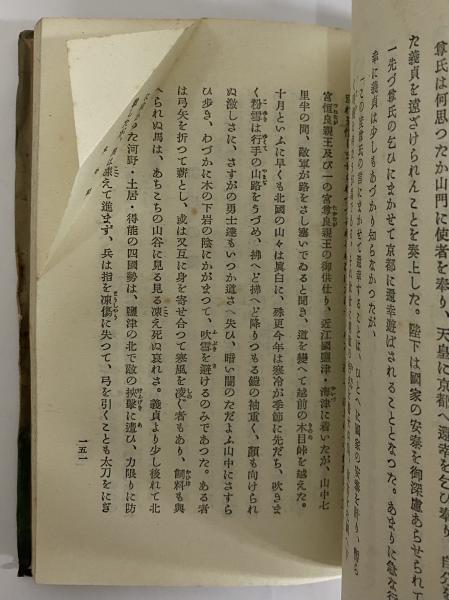 尊氏は何思つたか山門に使者を奉り、天皇に京都へ還幸を乞ひ奉り、自分を
た義貞を遠ざけられんことを奏上した。陛下は國家の安泰を御深慮あらせられて
一先づ尊氏の乞ひにまかせて京都に還幸遊ばされることとなつた。あまりに急な行
幸に義貞は少しもあづかり知らなかつたが、
宮恒良親王及び一の宮尊良親王の御供仕り、近江國鹽津・海津に着いたが、山中七
里半の間、敵軍が路をさし塞いでゐると聞き、道を變へて越前の木目峠を越えた。
十月といふに早くも北國の山々は眞白に、殊更今年は寒冷が季節に先だち、吹きま
く粉雪は行手の山路をうづめ、拂へど拂へど降りつもる鎧の袖重く、顏も向けられ
ぬ激しさに、さすがの勇士達もいつか道さへ失ひ、暗い闇のただよふ山中にさすら
ひ歩き、わづかに木の下岩の陰にかがまつて、吹雪を避けるのみであつた。ある者
は弓矢を折つて薪とし、或は又互に身を寄せ合つて寒風を凌ぐ者もあり、飼料も與
へられぬ馬は、あちこちの山谷に見る見る凍え死ぬ哀れさ。義貞より少し後れて北
つた河野・土居・得能の四國勢は、鹽津の北で敵の挾擊に遭ひ、力限りに防
は凍えて進まず、兵は指を凍傷に失つて、弓を引くことも太刀をにぎ
一五一